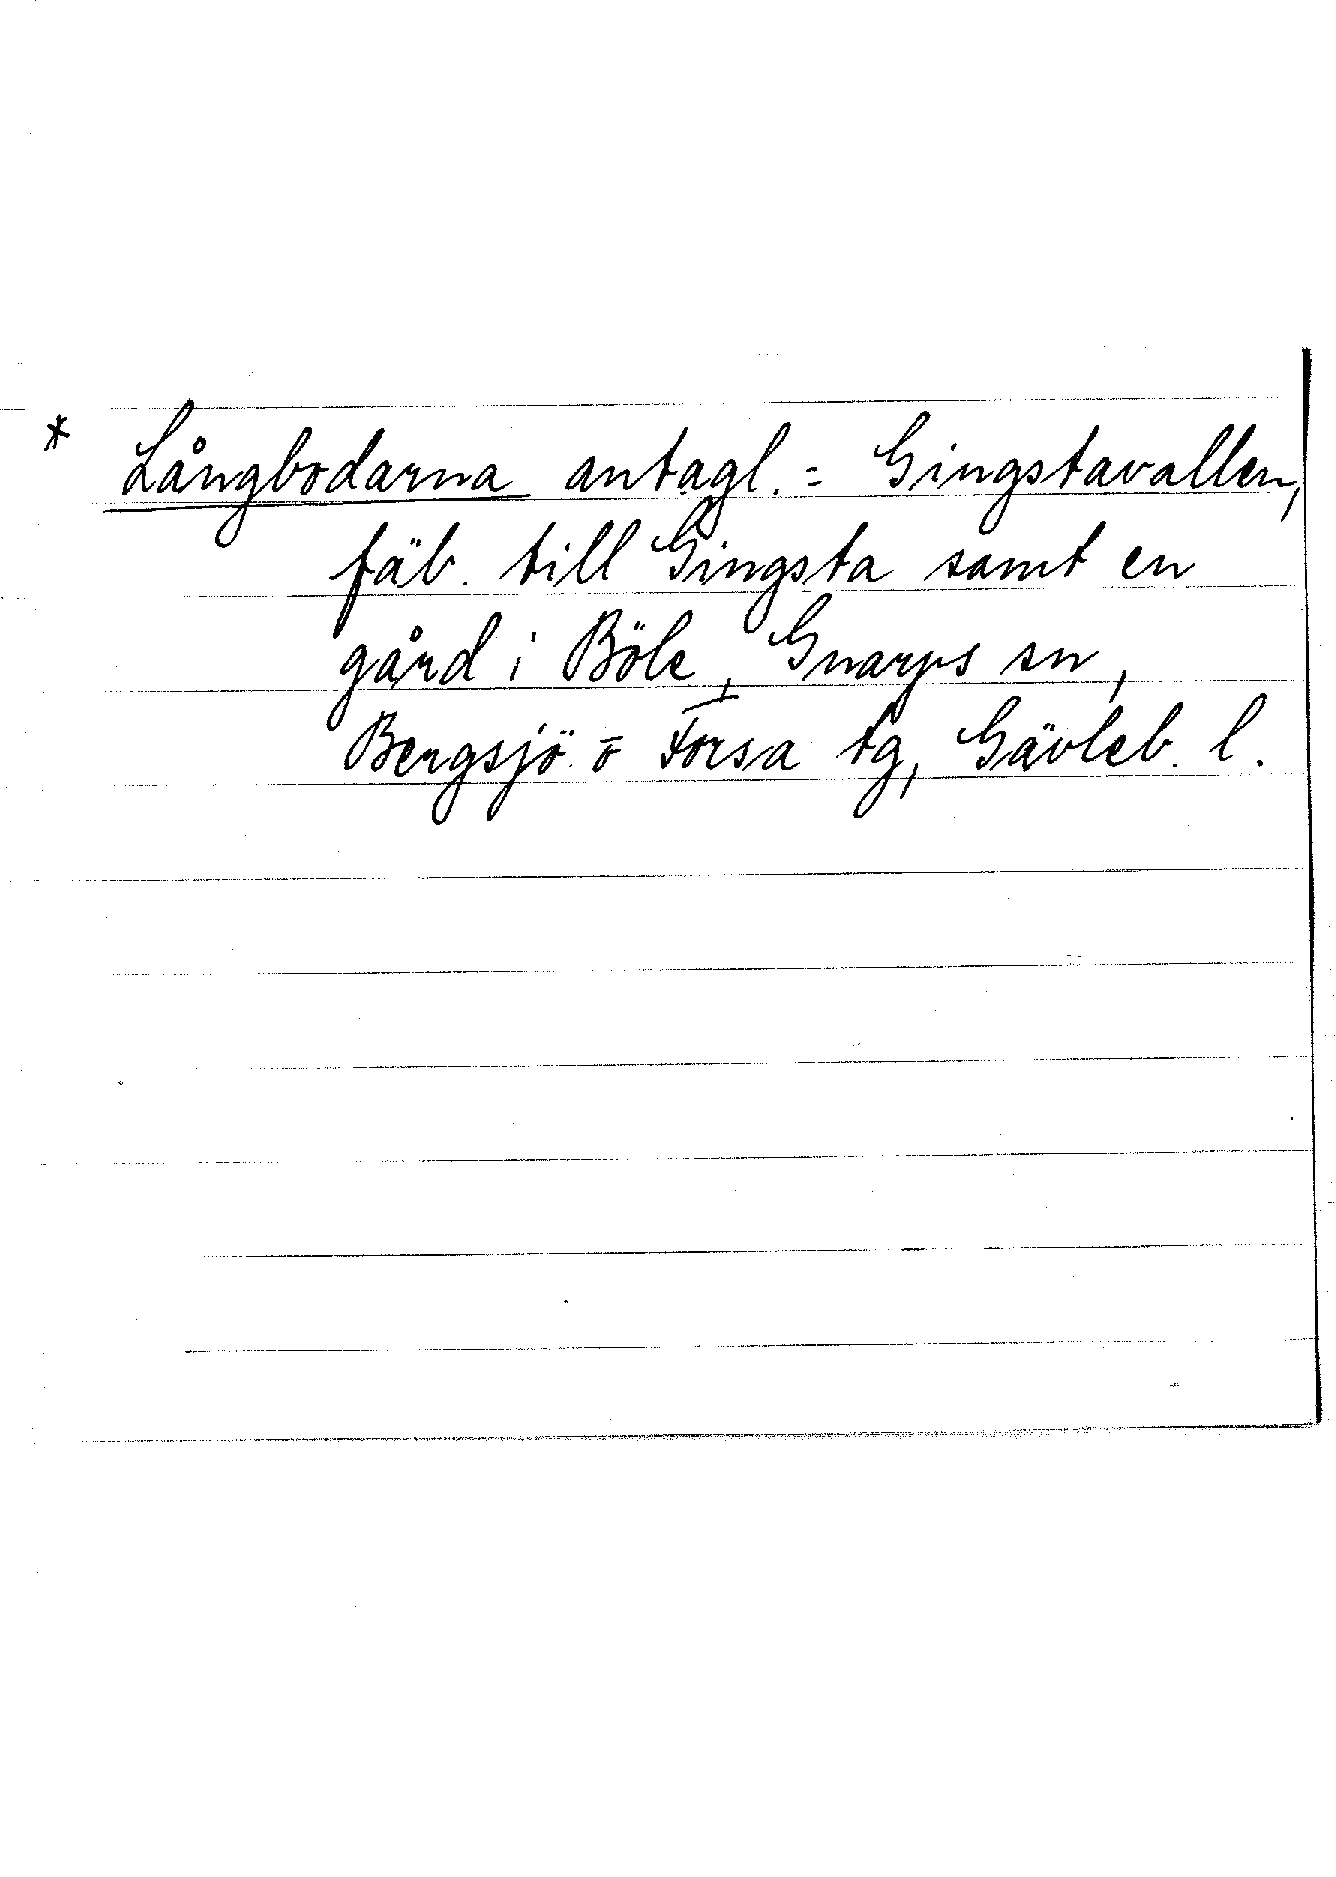 * Långbodarna antagl. = Gingstavallen,
fäb. till Gingsta samt en
gård i Böle, Gnarps sn,
Bergsjö o Forsa tg, Gävleb. l.